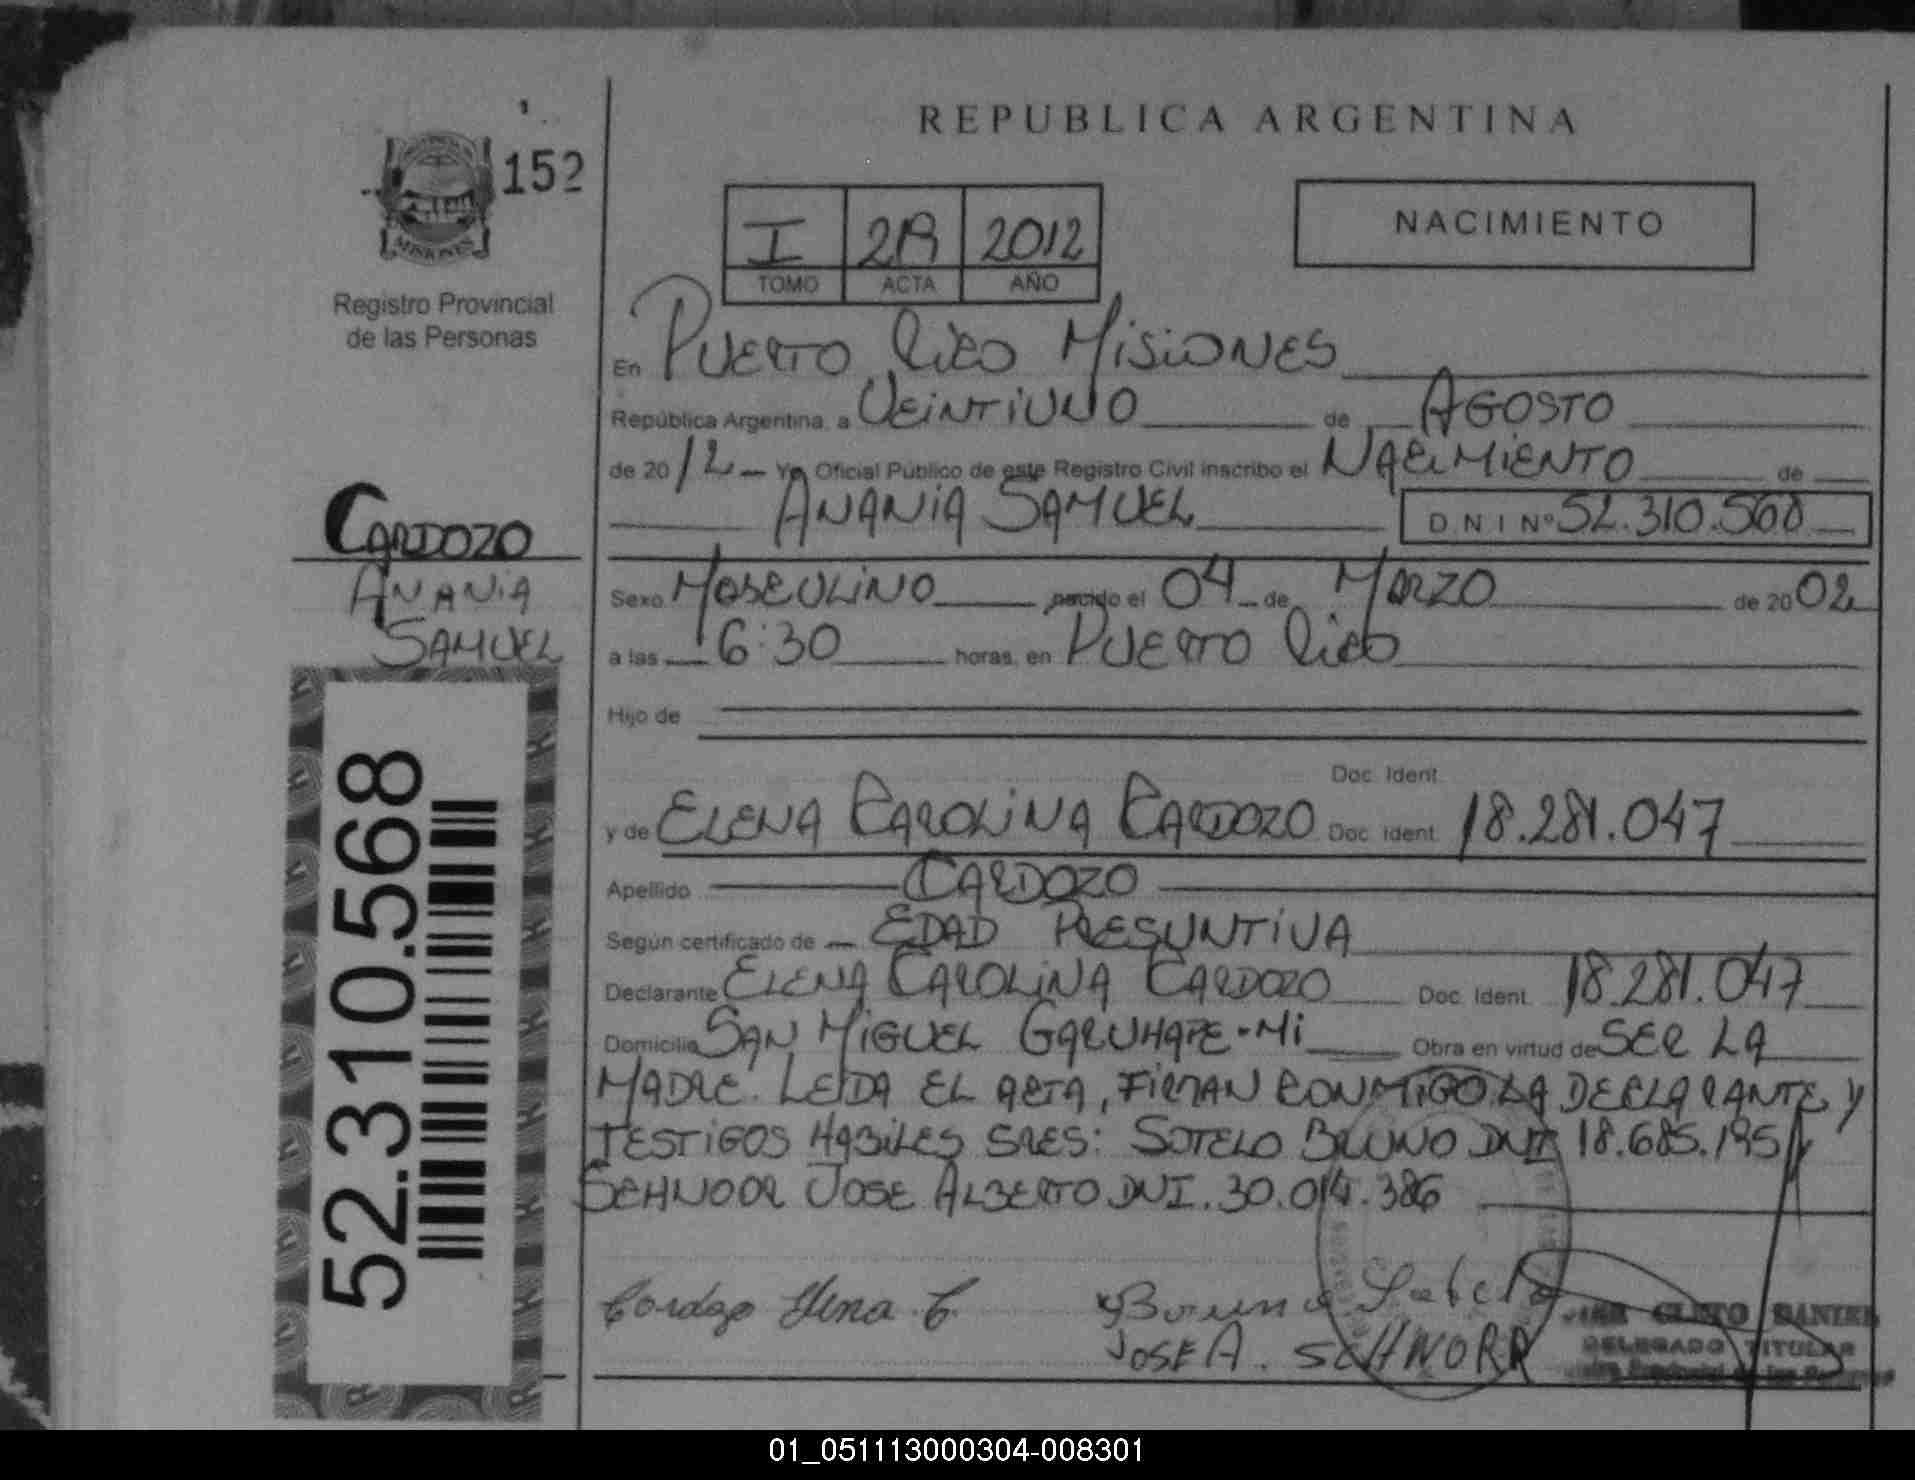 152
MISIONES
Registro Provincial
de las Personas
REPUBLICA ARGENTINA
I 2A 2012
TOMO ACTA AÑO
NACIMIENTO
En PUERTO RICO MISIONES
República Argentina, a VEINTIUNO de AGOSTO
de 2012 Yo Oficial Público de este Registro Civil inscribo el NACIMIENTO de
ANANIA SAMUEL D N I Nº 52.310.568
CARDOZO
ANANIA
SAMUEL
52.310.568
Sexo MASCULINO nacido el 04 de MARZO de 2002
a las 6:30 horas, en PUERTO RICO
Hijo de
Doc. Ident.
y de ELENA CAROLINA CARDOZO Doc. Ident. 18.281.047
Apellido CARDOZO
Según certificado de EDAD PRESUNTIVA
Declarante ELENA CAROLINA CARDOZO Doc. Ident. 18.281.047
Domicilio SAN MIGUEL GARUHAPE-Mi Obra en virtud de SER LA
MADRE. LEIDA EL ACTA, FIRMAN CONMIGO LA DECLARANTE Y
TESTIGOS HABILES SRES: SOTELO BRUNO DNI 18.685.195 Y
SCHNOOR JOSE ALBERTO DNI. 30.014.386
Cardozo Elena C.
Bruno Sotelo
JOSE A. SCHNORR
CLETO DANIEL
DELEGADO TITULAR
01_051113000304-008301